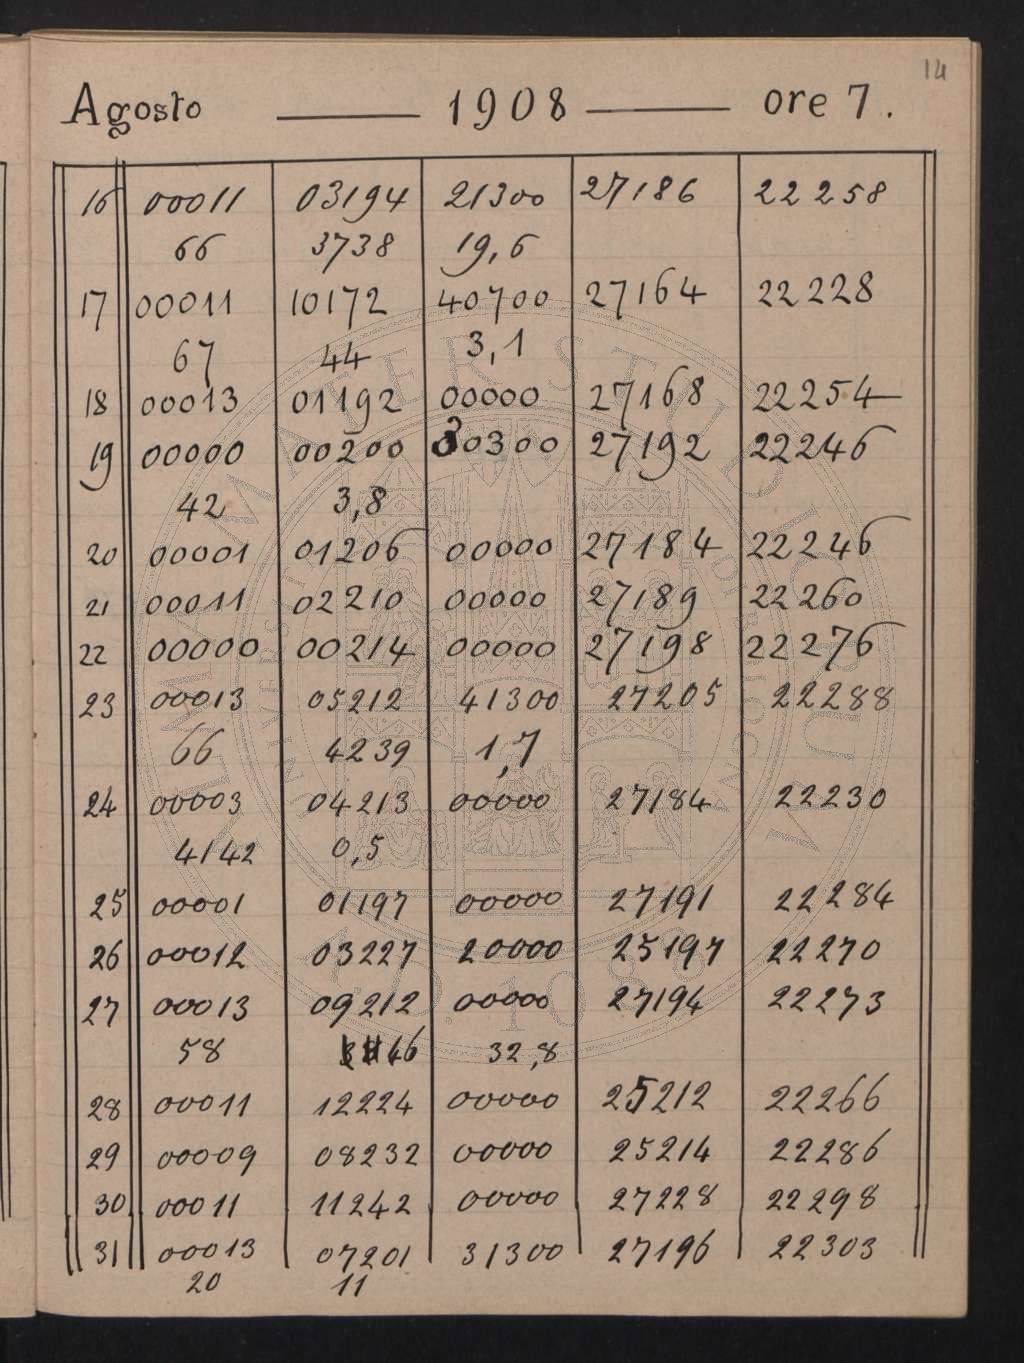 14
Agosto — 1908 — ore 7.
16 00011 03194 21300 27186 22258
66 3738 19,6
17 00011 10172 40700 27164 22228
67 44 3,1
18 00013 01192 00000 27168 22254
19 00000 00200 30300 27192 22246
42 3,8
20 00001 01206 00000 27184 22246
21 00011 02210 00000 27189 22260
22 00000 00214 00000 27198 22276
23 00013 05212 41300 27205 22288
66 4239 1,7
24 00003 04213 00000 27184 22230
4142 0,5
25 00001 01197 00000 27191 22284
26 00012 03227 20000 25197 22270
27 00013 09212 00000 27194 22273
58 46 32,8
28 00011 12224 00000 25212 22266
29 00009 08232 00000 25214 22286
30 00011 11242 00000 27228 22298
31 00013 07201 31300 27196 22303
20 11